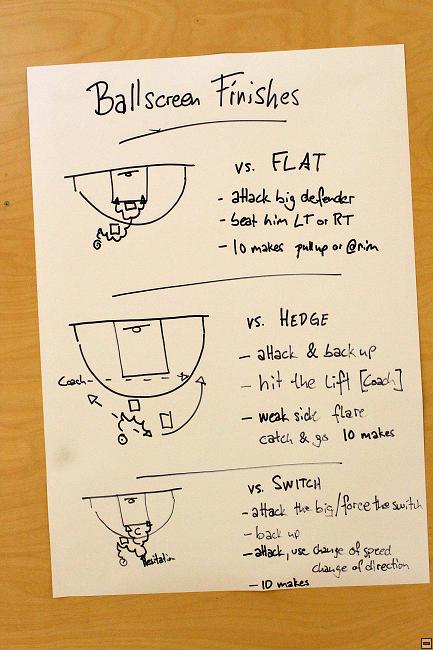 Ballscreen Finishes
vs. FLAT
- attack big defender
- beat him LT or RT
- 10 makes pullup or @rim
vs. HEDGE
- attack & back up
Coach
- hit the lift [Coach]
- weak side flare
catch & go 10 makes
vs. SWITCH
- attack the big/force the switch
- back up
- attack, use change of speed
change of direction
C
Hesitation
- 10 makes